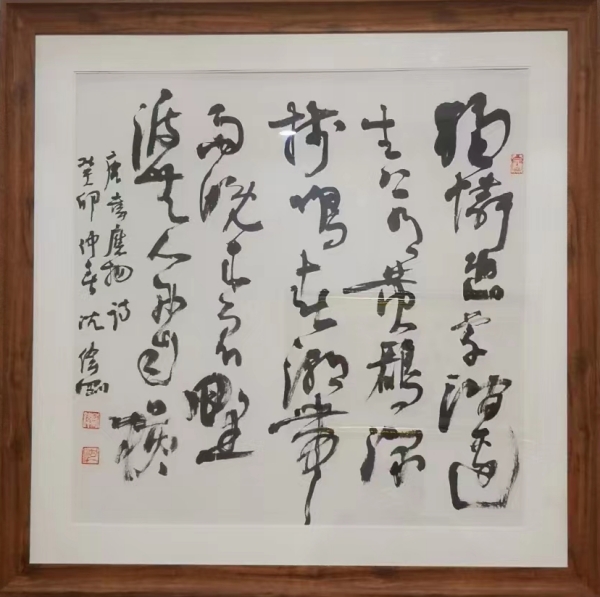 獨憐幽草澗邊
生上有黃鸝深
樹鳴春潮帶
雨晚來急野
渡無人舟自橫
唐韋應物詩
癸卯仲春沈